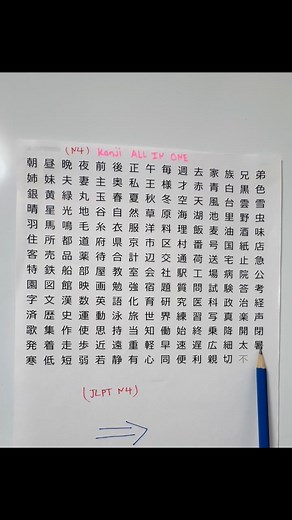 (N4) Kanji ALL IN ONE
朝 昼 晩 夜 前 後 正 午 毎 週 去 家 族 兄 弟
姉 妹 夫 妻 主 奥 私 王 様 才 赤 青 白 黒 色
銀 黄 緑 丸 玉 春 夏 秋 冬 空 天 台 雲 雪
晴 星 光 地 谷 自 然 草 原 海 湖 風 里 野 虫
羽 馬 鳴 毛 糸 衣 服 洋 料 理 池 麦 油 酒 味
住 所 都 道 府 県 京 市 区 村 番 号 国 紙 店
客 売 品 薬 待 合 計 送 荷 工 場 宅 止 急
特 鉄 船 部 屋 教 室 交 通 駅 病 院 公
園 図 館 映 画 勉 強 会 社 質 問 試 験 答 考
字 文 漢 数 英 語 宿 育 題 研 究 医 科 政 治 経
済 歴 史 運 動 旅 世 界 練 習 写 真 楽 声
歌 集 作 使 歩 思 持 当 知 働 始 終 乗 降 開 閉
発 着 走 帰 起 送 遠 重 軽 早 速 遅 広 細 太 暑
寒 低 短 弱 若 静 有 心 同 便 利 親 切 不
(JLPT N4)